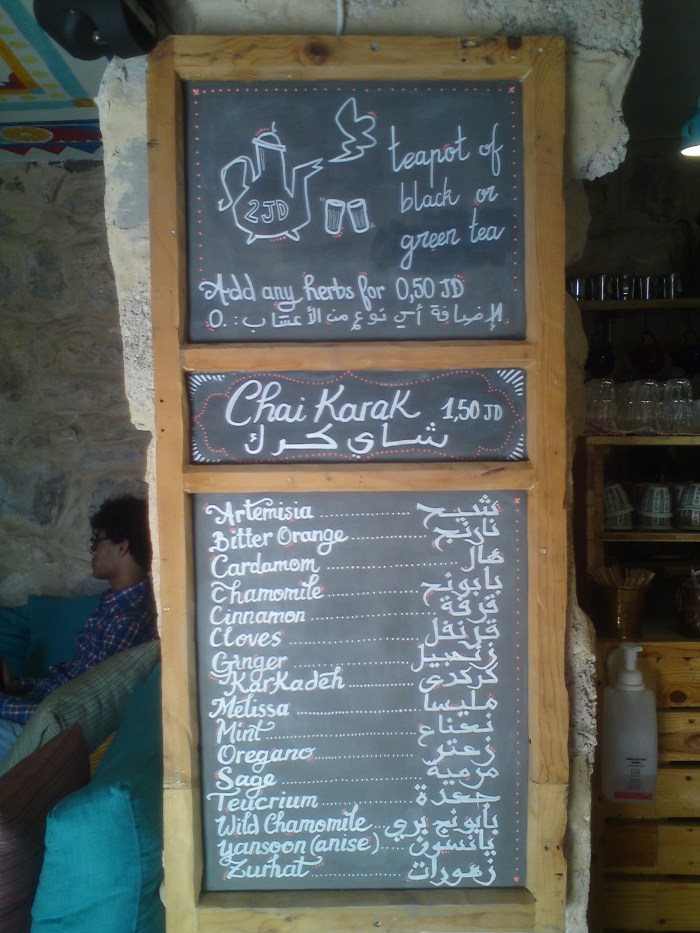 2JD
teapot of
black or
green tea
Add any herbs for 0,50 JD
لإضافة أي نوع من الأعشاب : ٥.
Chai Karak 1,50 JD
شاي كرك
Artemisia شيح
Bitter Orange نارنج
Cardamom هال
Chamomile بابونج
Cinnamon قرفة
Cloves قرنفل
Ginger زنجبيل
Karkadeh كركدى
Melissa مليسا
Mint نعناع
Oregano زعتر
Sage مرمية
Teucrium جعدة
Wild Chamomile بابونج بري
Yansoon (anise) يانسون
Zurhat زهورات